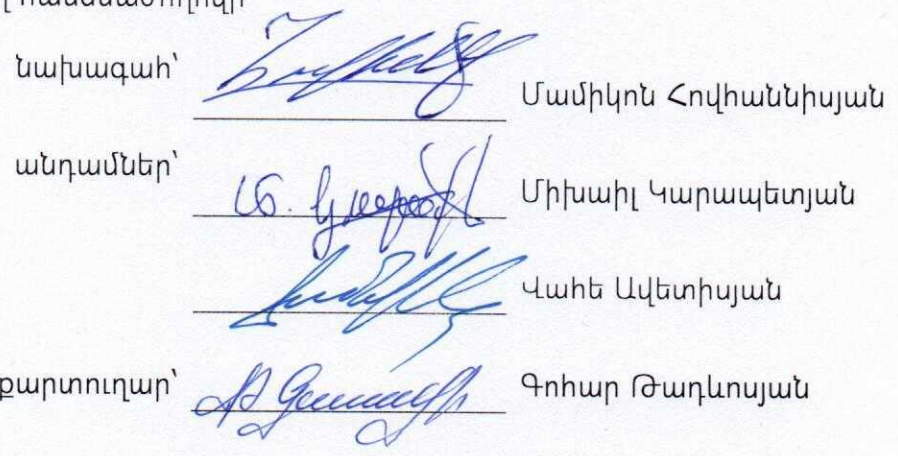 հանձնաժողովի
նախագահ՝ Մամիկոն Հովհաննիսյան
անդամներ՝ Միխաիլ Կարապետյան
Վահե Ավետիսյան
քարտուղար՝ Գոհար Թադևոսյան